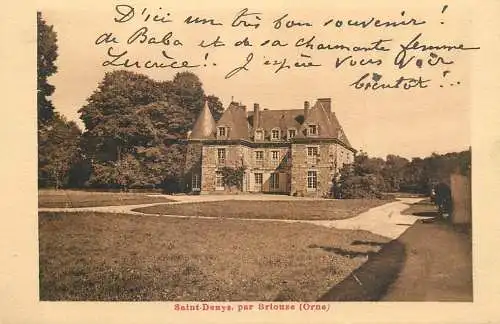 D'ici un très bon souvenir !
de Baba et de sa charmante femme
Lucrèce !. J'espère vous voir
bientôt !
Saint-Denys, par Briouze (Orne)